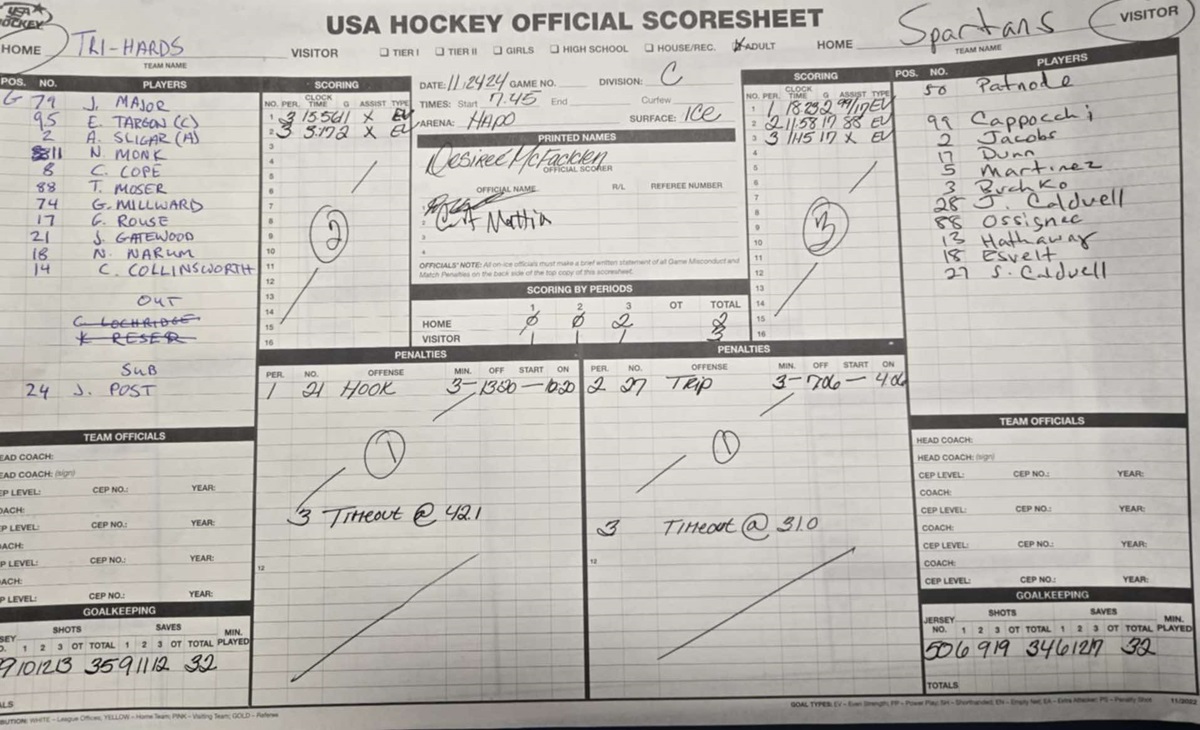 USA HOCKEY
USA HOCKEY OFFICIAL SCORESHEET
HOME TRI-HARDS VISITOR
TEAM NAME
☐ TIER I ☐ TIER II ☐ GIRLS ☐ HIGH SCHOOL ☐ HOUSE/REC. ☒ ADULT
HOME Spartans VISITOR
TEAM NAME
POS. NO. PLAYERS
G 79 J. MAJOR
95 E. TARGON (C)
2 A. SLIGAR (A)
11 N. MONK
8 C. COPE
88 T. MOSER
74 G. MILLWARD
17 G. ROUSE
21 J. GATEWOOD
18 N. NARUM
14 C. COLLINSWORTH
OUT
C LOCHRIDGE
K RESER
SUB
24 J. POST
SCORING
NO. PER. CLOCK TIME G ASSIST TYPE
1 3 15:56 11 X EV
2 3 5:17 2 X EV
3
4
5
6
7
8
9
10
11
12
13
14
15
16
2
DATE: 11.24.24 GAME NO. DIVISION: C
TIMES: Start 7:45 End Curfew
ARENA: HAPO SURFACE: ICE
PRINTED NAMES
Desiree McFadden
OFFICIAL SCORER
OFFICIAL NAME R/L REFEREE NUMBER
1
2 Mattia
3
4
OFFICIALS' NOTE: All on-ice officials must make a brief written statement of all Game Misconduct and
Match Penalties on the back side of the top copy of this scoresheet.
SCORING BY PERIODS
1 2 3 OT TOTAL
HOME 0 0 2 2
VISITOR 1 1 1 3
SCORING
NO. PER. CLOCK TIME G ASSIST TYPE
1 1 18:23 2 99/17 EV
2 2 11:58 17 88 EV
3 3 1:45 17 X EV
4
5
6
7
8
9
10
11
12
13
14
15
16
3
POS. NO. PLAYERS
50 Patnode
99 Cappocchi
2 Jacobs
17 Dunn
5 Martinez
3 Buchko
28 J. Caldwell
88 Ossignac
13 Hathaway
18 Esvelt
27 S. Caldwell
PENALTIES
PER. NO. OFFENSE MIN. OFF START ON
1 21 HOOK 3 - 1320 - 1020
1
3 Timeout @ 42.1
12
PENALTIES
PER. NO. OFFENSE MIN. OFF START ON
2 27 Trip 3 - 706 - 406
1
3 Timeout @ 31.0
12
TEAM OFFICIALS
EAD COACH:
EAD COACH: (sign)
EP LEVEL: CEP NO.: YEAR:
OACH:
EP LEVEL: CEP NO.: YEAR:
ACH:
P LEVEL: CEP NO.: YEAR:
ACH:
P LEVEL: CEP NO.: YEAR:
GOALKEEPING
SHOTS SAVES MIN. PLAYED
1 2 3 OT TOTAL 1 2 3 OT TOTAL
9 10 12 13 35 9 11 12 32
TEAM OFFICIALS
HEAD COACH:
HEAD COACH: (sign)
CEP LEVEL: CEP NO.: YEAR:
COACH:
CEP LEVEL: CEP NO.: YEAR:
COACH:
CEP LEVEL: CEP NO.: YEAR:
COACH:
CEP LEVEL: CEP NO.: YEAR:
GOALKEEPING
JERSEY NO. SHOTS SAVES MIN. PLAYED
1 2 3 OT TOTAL 1 2 3 OT TOTAL
50 6 9 19 34 6 12 17 32
TOTALS
ALS
BUTION: WHITE – League Offices, YELLOW – Home Team; PINK – Visiting Team; GOLD – Referee
GOAL TYPES: EV – Even Strength, PP – Power Play; SH – Shorthanded; EN – Empty Net; EA – Extra Attacker; PS – Penalty Shot 11/2022